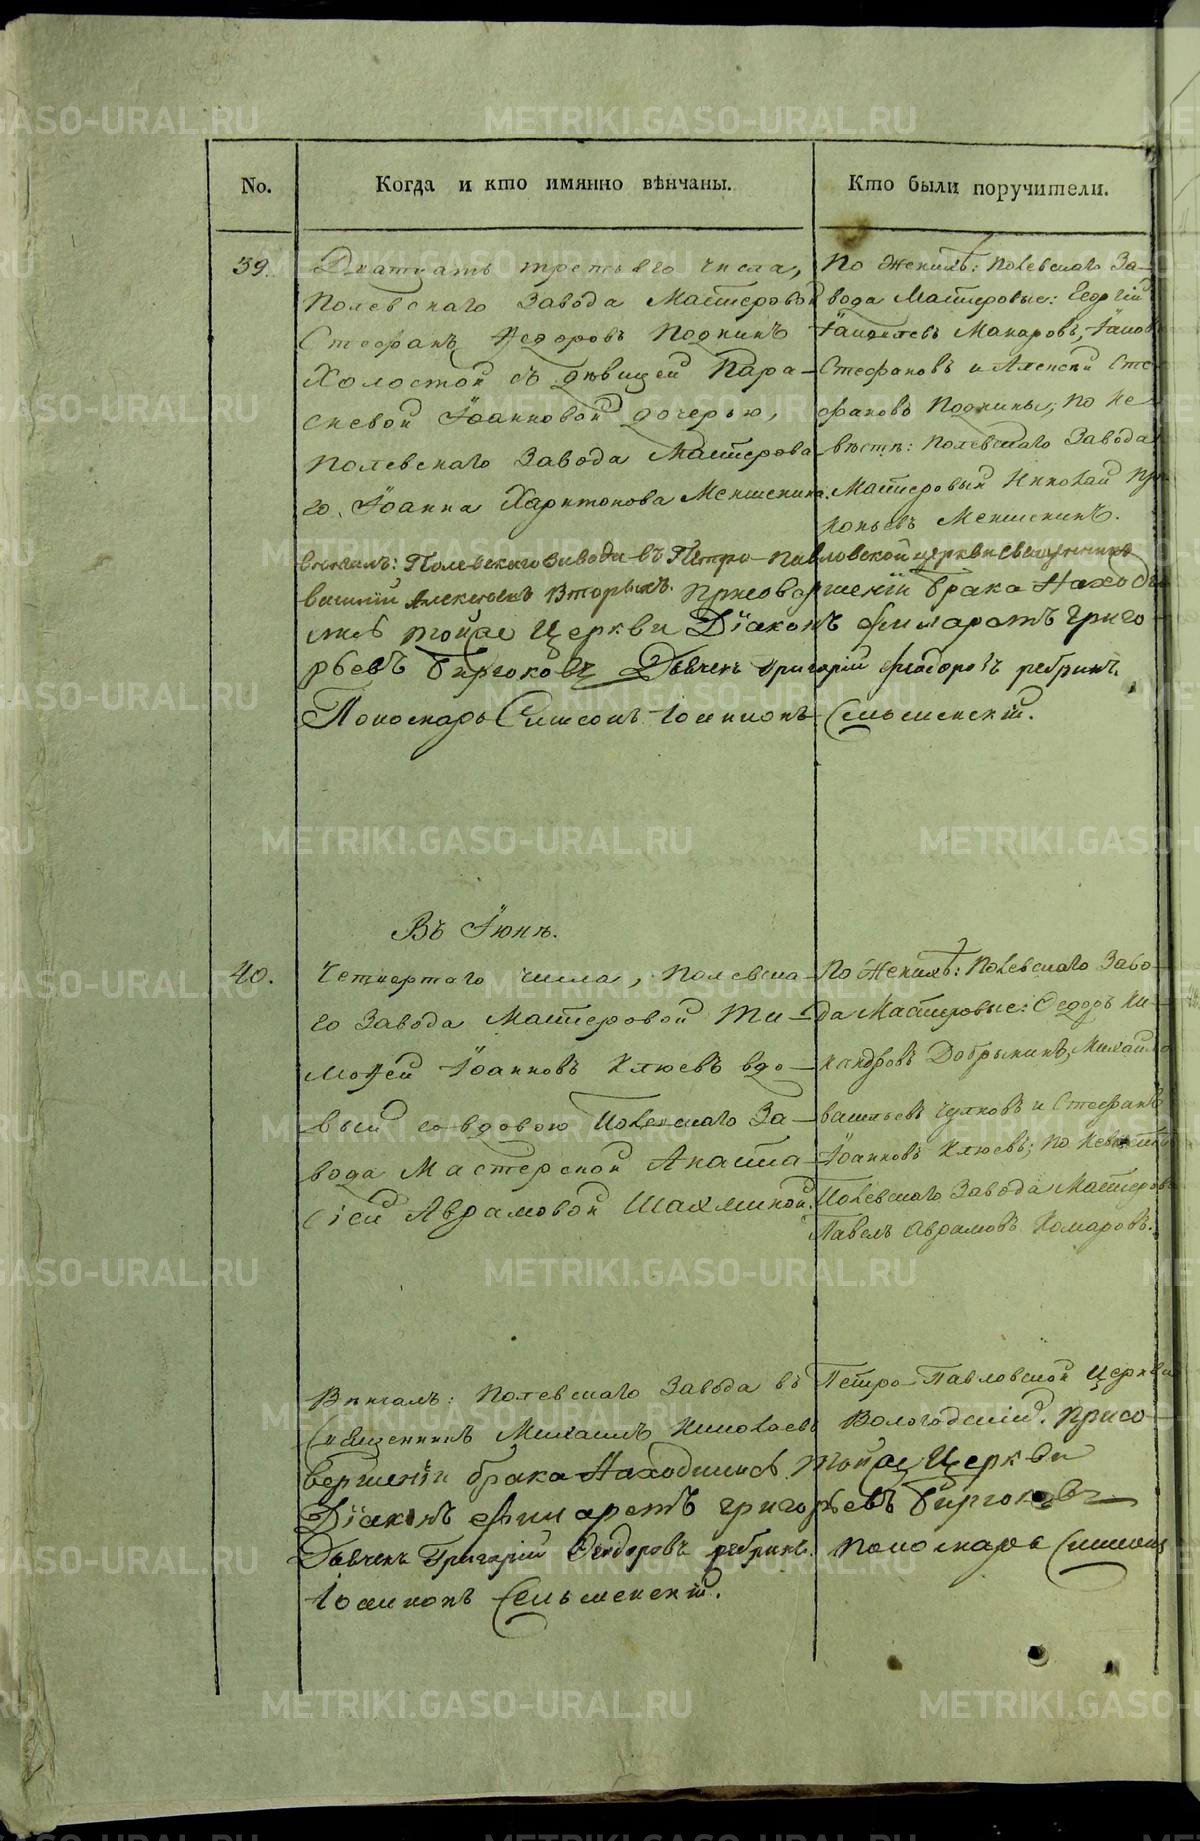 No. Когда и кто имянно вѣнчаны. Кто были поручители.
39. Дватцать третьяго числа,
Полевскаго Завода Мастеровой
Стефанъ Ѳедоровъ Подкинъ
Холостой съ дѣвицей Пара-
скевой Їоанновой дочерью,
Полевскаго Завода Мастерова-
го Їоанна Харитонова Меншенина.
По Женихѣ: Полевскаго За-
вода Мастеровые: Георгій
Макаровъ,
Стефановъ и Алексѣй Сте-
фановъ Подкины, по Не-
вѣстѣ: Полевскаго Завода
Мастеровый Николай Про-
копьевъ Меншенинъ.
Венчалъ: Полевскаго Завода въ Петро-Павловской церкви Священникъ
Алексѣевъ Вторыхъ. При совершеніи брака Находи-
лись тойже Церкви Дїаконъ Филаретъ Григо-
рьевъ Бирюковъ Дьячекъ Григорій Феодоровъ ребринъ.
Пономарь Симеонъ Іоанновъ Сельменскій.
Въ Їюнѣ.
40. Четвертаго числа, Полевска-
го Завода Мастеровой Ти-
моѳей Їоанновъ Клюевъ вдо-
вый со вдовою Полевскаго За-
вода Мастерской Анаста-
сіей Аврамовой Шахминой.
По Женихѣ: Полевскаго Заво-
да Мастеровые: Ѳедоръ Ни-
кандровъ Добрынинъ, Михайло
Васильевъ Чулковъ и Стефанъ
Їоанновъ Клюевъ; по Невѣстѣ
Полевскаго Завода Мастерово
Павелъ Аврамовъ Комаровъ.
Вѣнчалъ: Полевскаго Завода въ Петро-Павловской Церкви
Священникъ Михаилъ Николаевъ Вологодскій. При со-
вершеніи брака Находились тойже Церкви
Дїаконъ Филаретъ Григорьевъ Бирюковъ
Дьячекъ Григорій Феодоровъ ребринъ. Пономарь Симеонъ
Іоанновъ Сельменскій.
METRIKI.GASO-URAL.RU